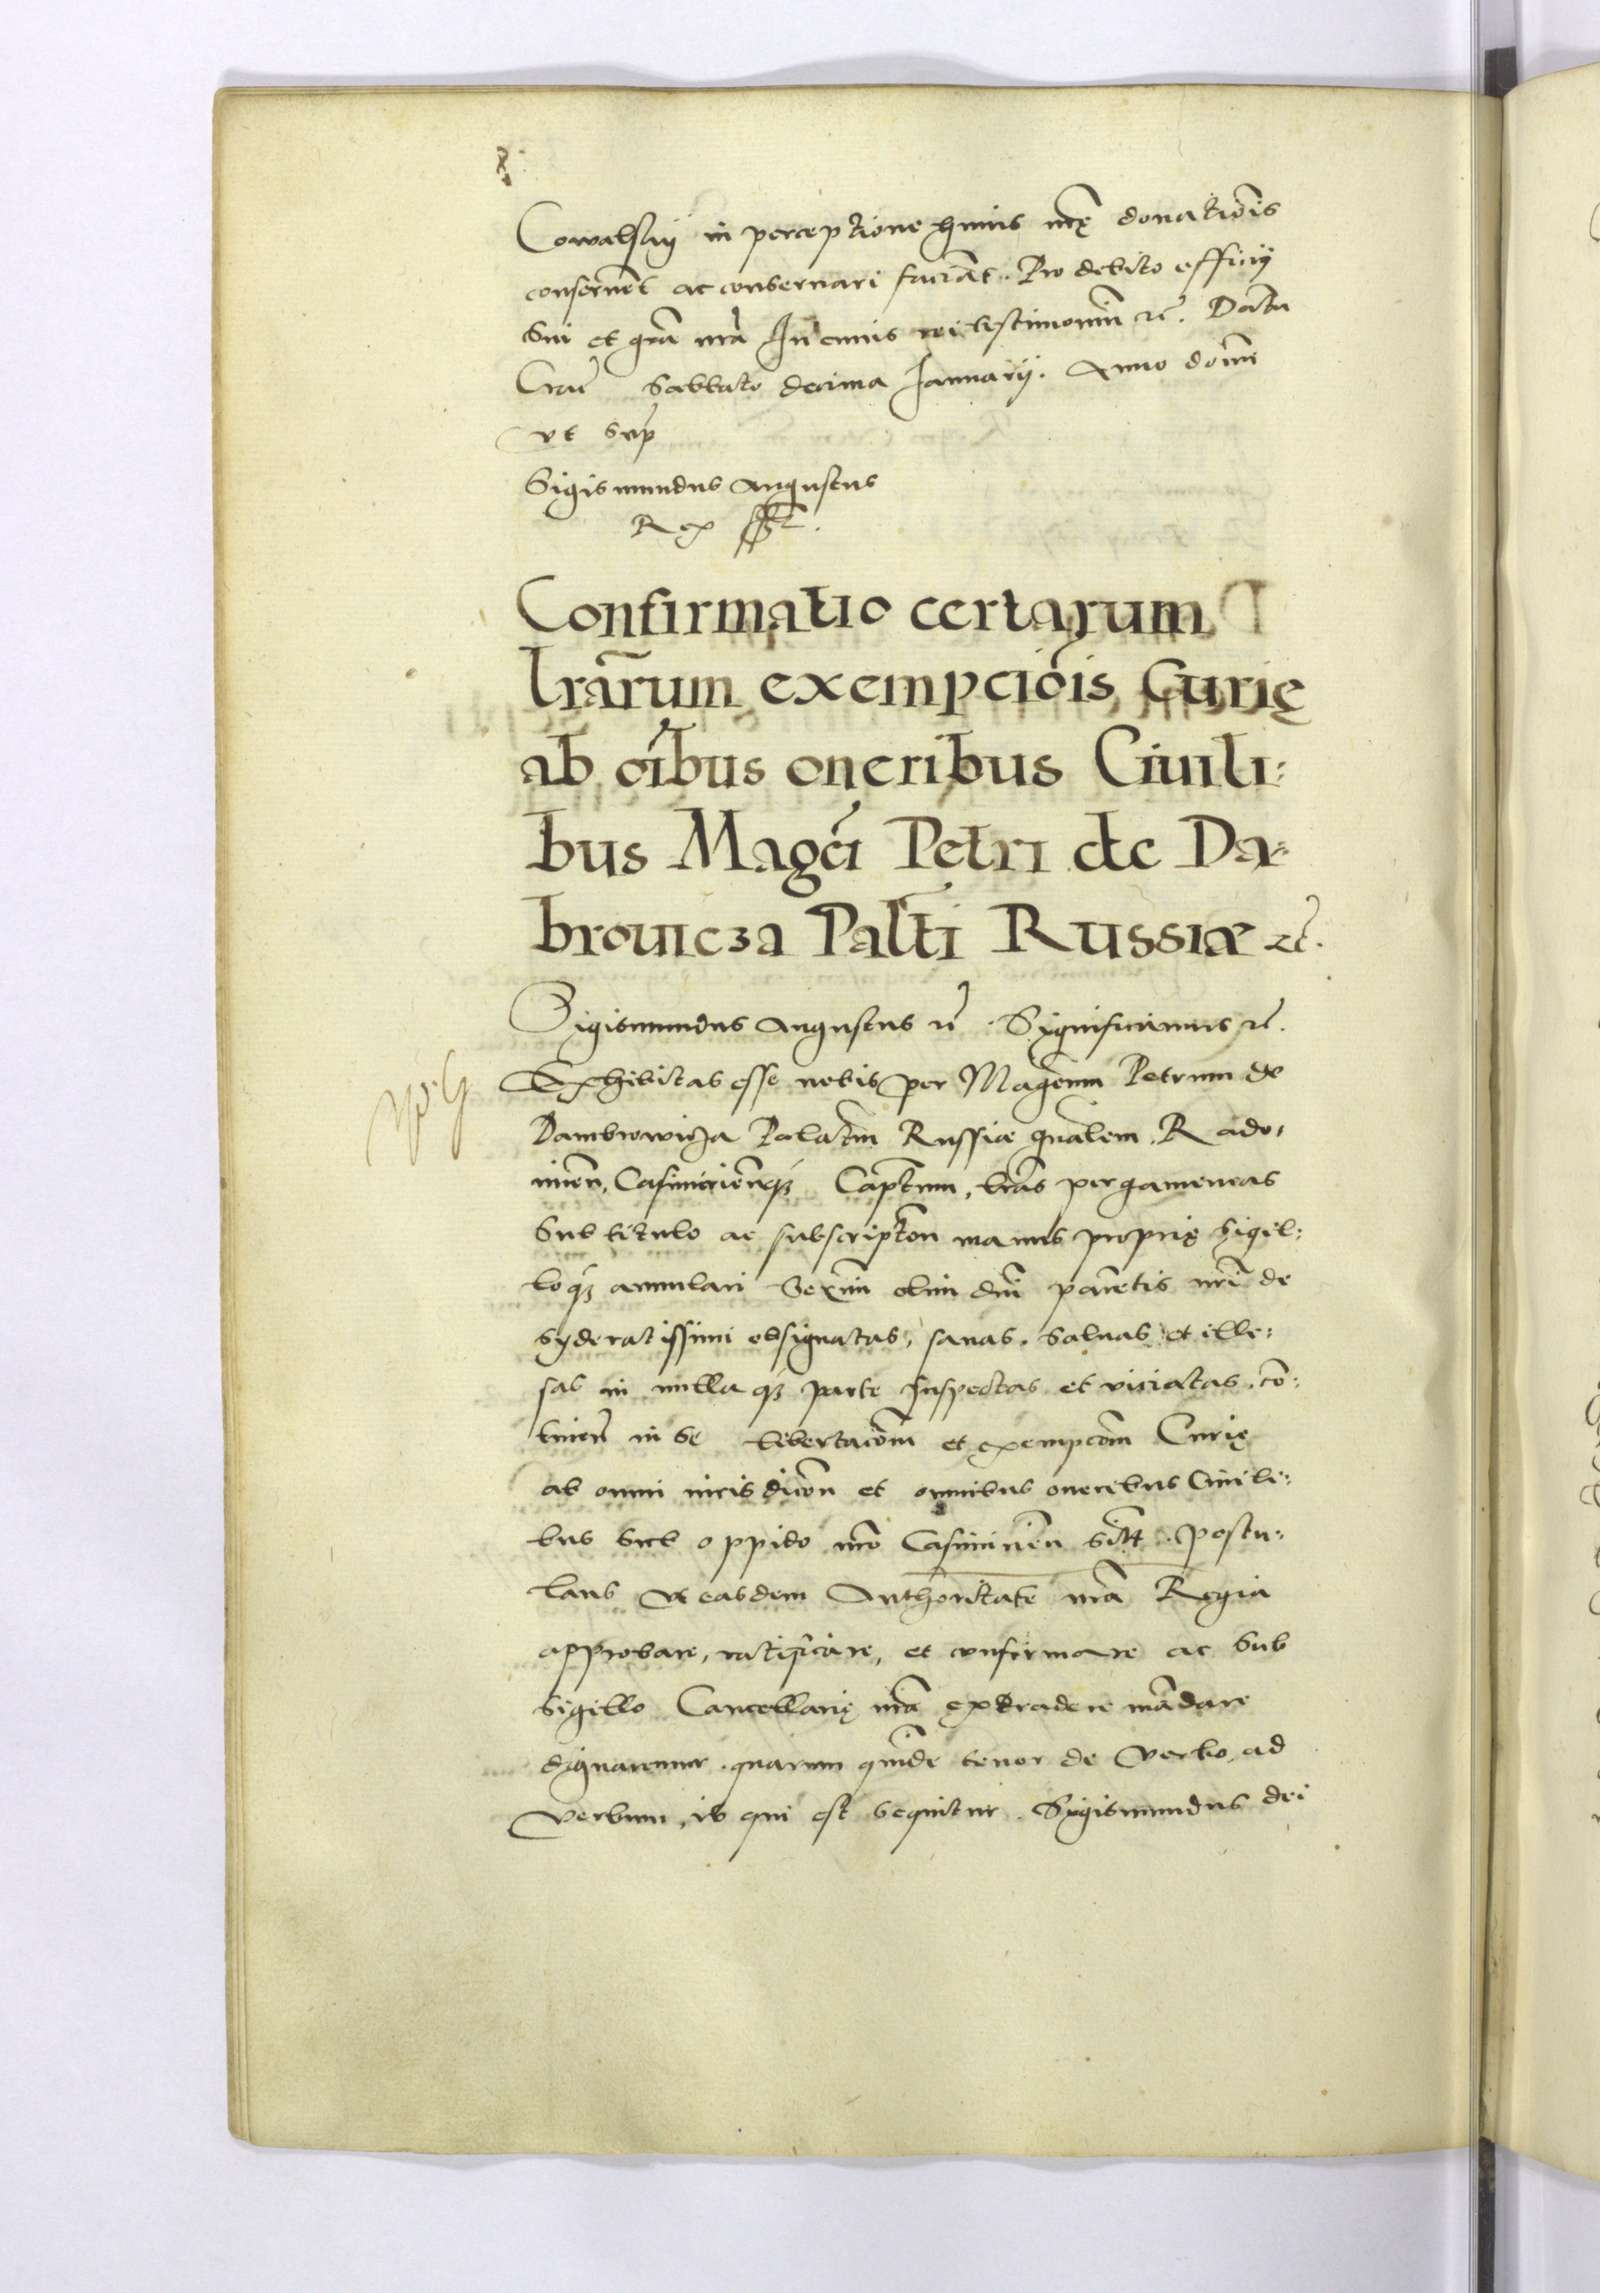 Cowalskij in perceptione huius nrę donationis
conseruēt ac conseruari faciāt. Pro debito officij
sui et grā nrā In cuius rei testimonium rc̃. Datū
Crac̃ Sabbato decima Januarij. Anno domi
vt sup̄
Sigismundus Augustus
Rex sst.
Confirmatio certarum
lrārum exempciōis Curię
ab oībus oneribus Ciuili:
bus Magc̃i Petri de Da-
brouicza Palt̃i Russiæ rc̃.
Sigismundus Augustus rc̃. Significamus rc̃.
Exhibitas esse nobis per Magcūm Petrum de
Dambrowicza Palatīm Russiæ gnālem, Rado-
mien̄, Casimirien̄q₃ Capt̄um, lrās pergameneas
sub titulo ac subscriptōn manus proprię sigil:
loq₃ annulari Serm̄i olim dnī parētis nrī de
syderatissimi obsignatas, sanas, saluas et ille:
sas in nullaq₃ parte suspectas et viciatas, cō:
tinen̄ in se libertacōm et exempcōm Curię
ab omni iurisdicōn et omnibus oneribus Ciuili:
bus sub oppido nrō Casimirien̄ sitę. Postu:
lans vt easdem Authoritate nrā Regia
approbare, ratificare, et confirmare ac sub
sigillo Cancellarię nrā extradere mādare
dignaremur. quarum quidē tenor de verbo ad
verbum, is qui est sequitur. Sigismundus dei